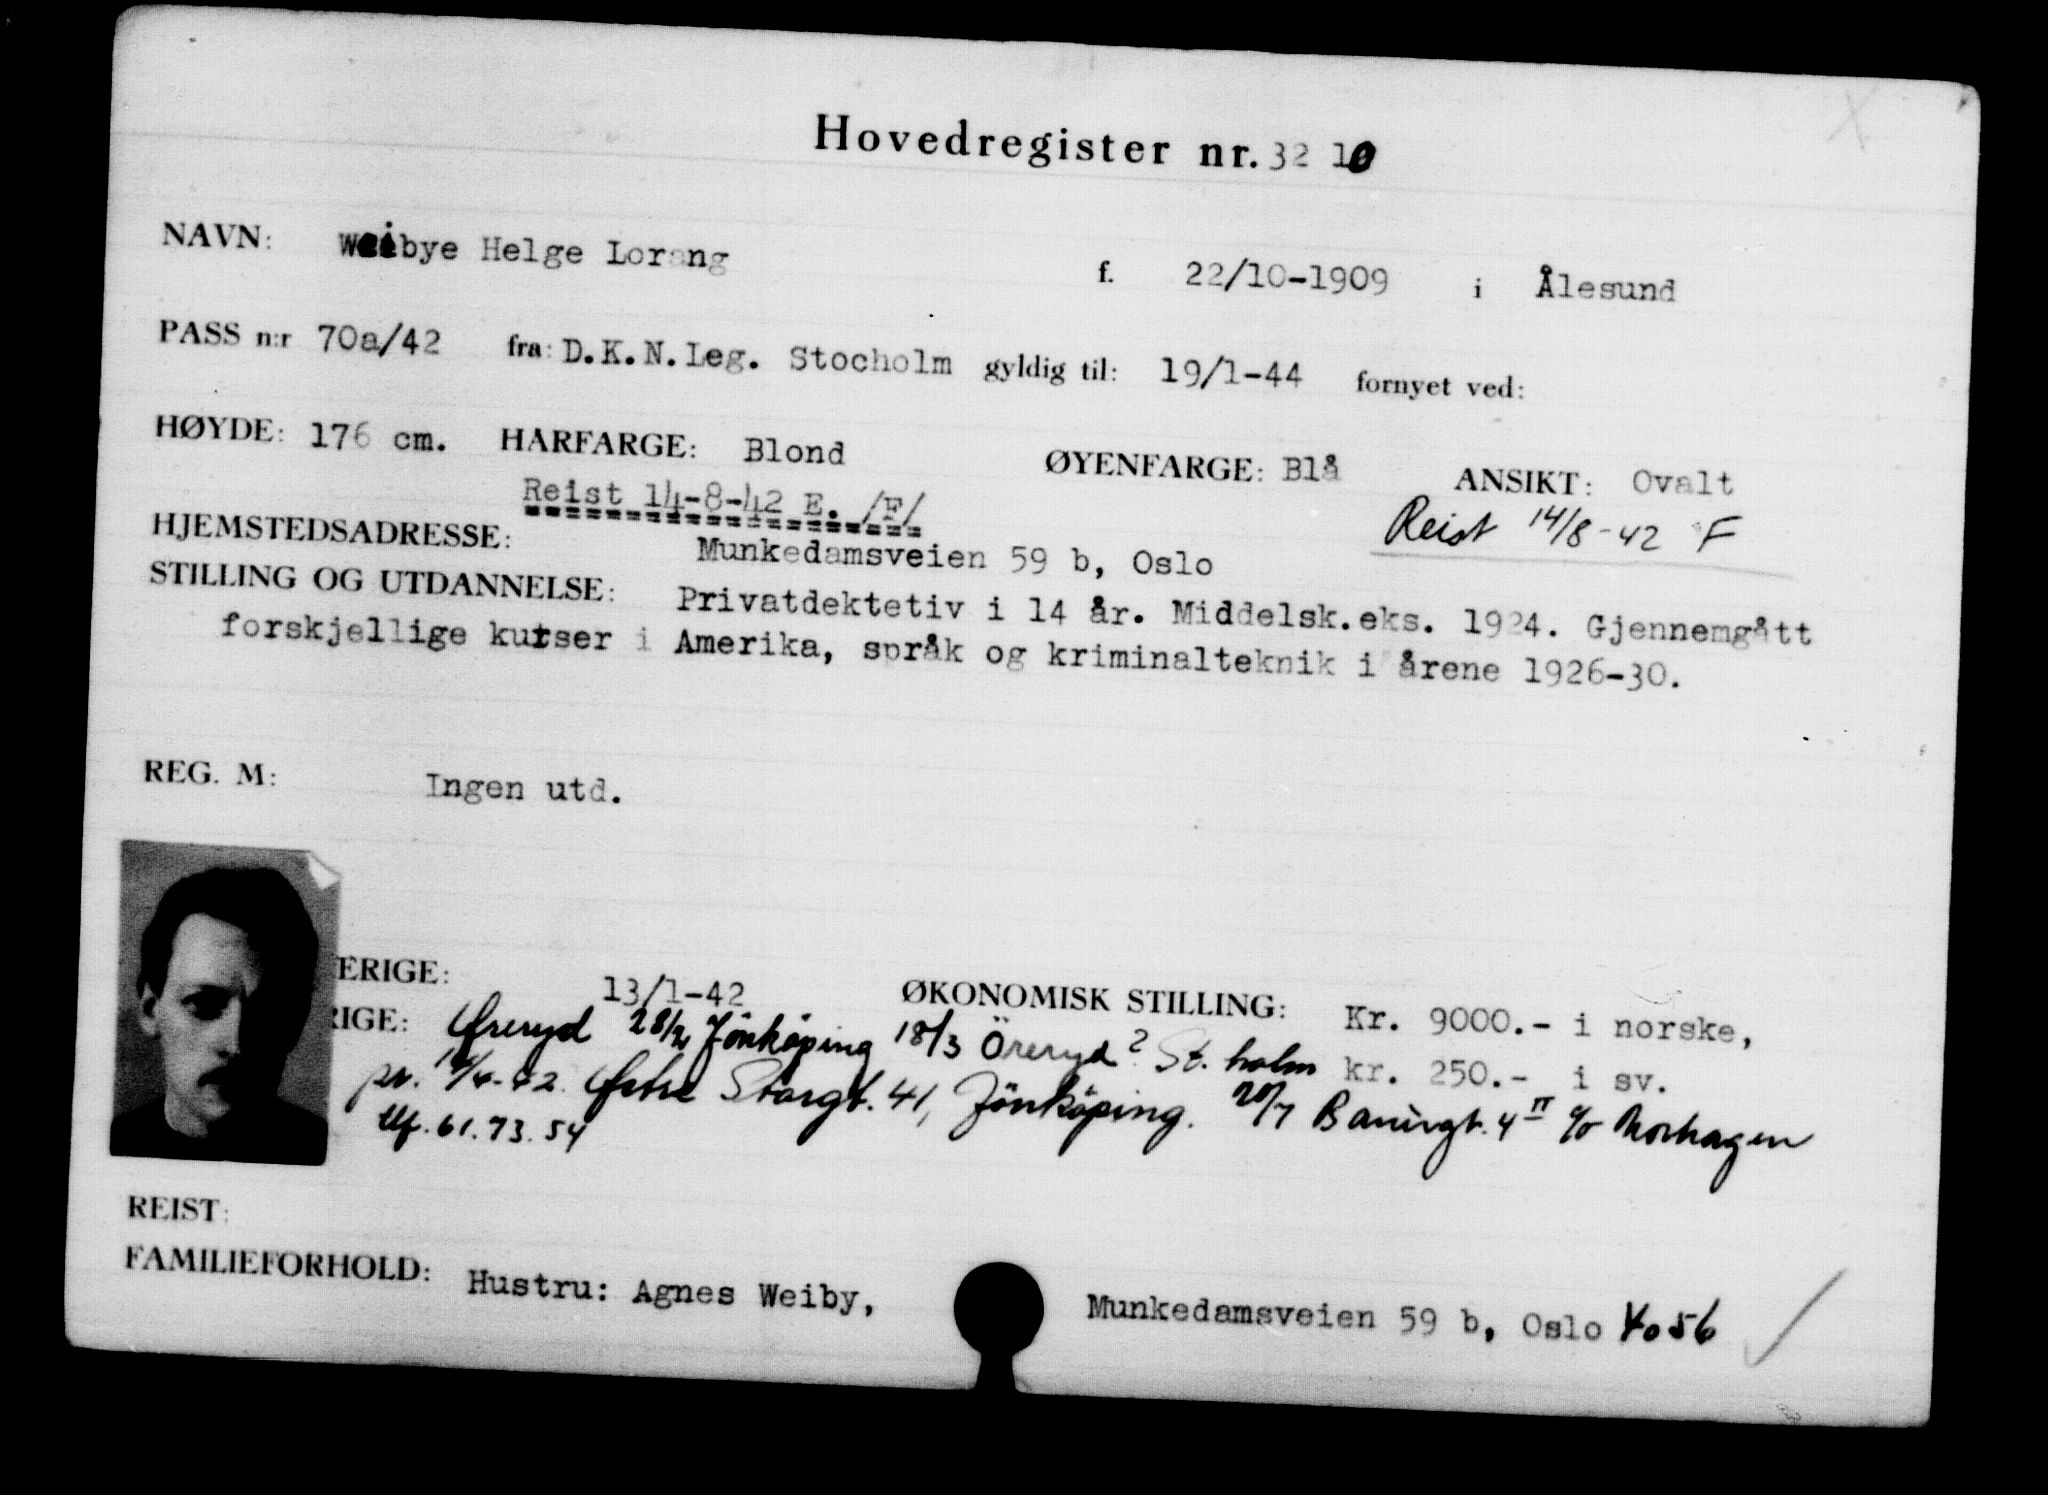 Hovedregister nr. 32 10
NAVN: Weibye Helge Lorang f. 22/10-1909 i Ålesund
PASS n:r 70a/42 fra: D.K.N.Leg. Stocholm gyldig til: 19/1-44 fornyet ved:
HØYDE: 176 cm. HARFARGE: Blond ØYENFARGE: Blå ANSIKT: Ovalt
Reist 14-8-42 E. /F/ Reist 14/8-42 F
HJEMSTEDSADRESSE: Munkedamsveien 59 b, Oslo
STILLING OG UTDANNELSE: Privatdektetiv i 14 år. Middelsk.eks. 1924. Gjennemgått
forskjellige kurser i Amerika, språk og kriminalteknik i årene 1926-30.
REG. M: Ingen utd.
ERIGE: 13/1-42 ØKONOMISK STILLING: Kr. 9000.- i norske,
RIGE: Øreryd 28/2 Jönköping 18/3 Öreryd ? St. holm kr. 250.- i sv.
pr. /4-42. Østre Storgt. 41, Jönköping. 20/7 Banérgt. 4 II c/o Norhagen
tlf. 61.73.54
REIST:
FAMILIEFORHOLD: Hustru: Agnes Weiby, Munkedamsveien 59 b, Oslo 4056